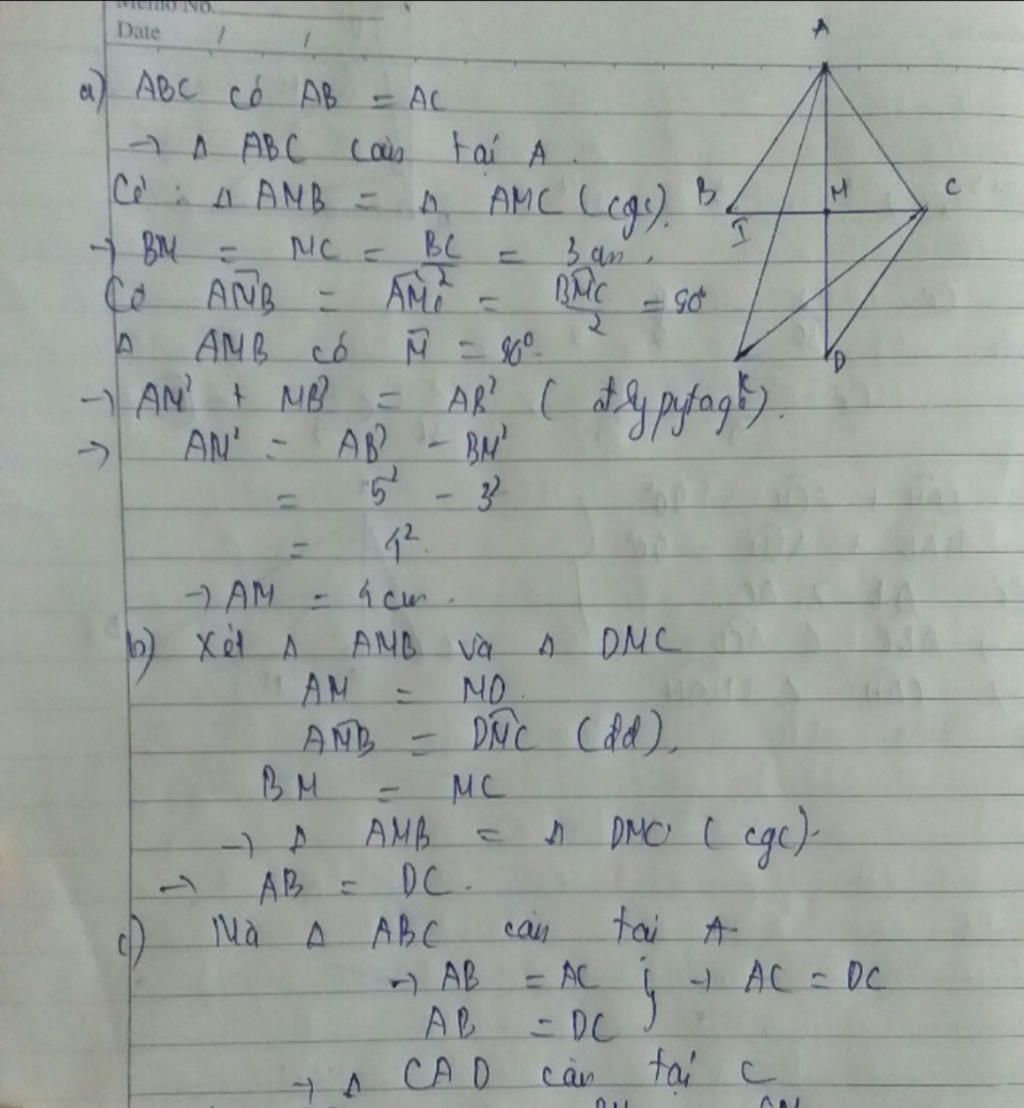 Memo No.
Date / /
a) ABC có AB = AC
→ Δ ABC cân tại A.
Có : Δ AMB = Δ AMC (cgc).
→ BM = MC = BC/2 = 3 cm.
Có AMB = AMC = BMC/2 = 90°
Δ AMB có M = 90°
→ AM² + MB² = AB² (đ lý pytago).
→ AM² = AB² - BM²
= 5² - 3²
= 4²
→ AM = 4 cm.
b) Xét Δ AMB và Δ DMC
AM = MD.
AMB = DMC (đđ),
BM = MC
→ Δ AMB = Δ DMC (cgc).
→ AB = DC.
c) Mà Δ ABC cân tại A
→ AB = AC } → AC = DC
AB = DC
→ Δ CAD cân tại C
A
B
M
C
I
D
K